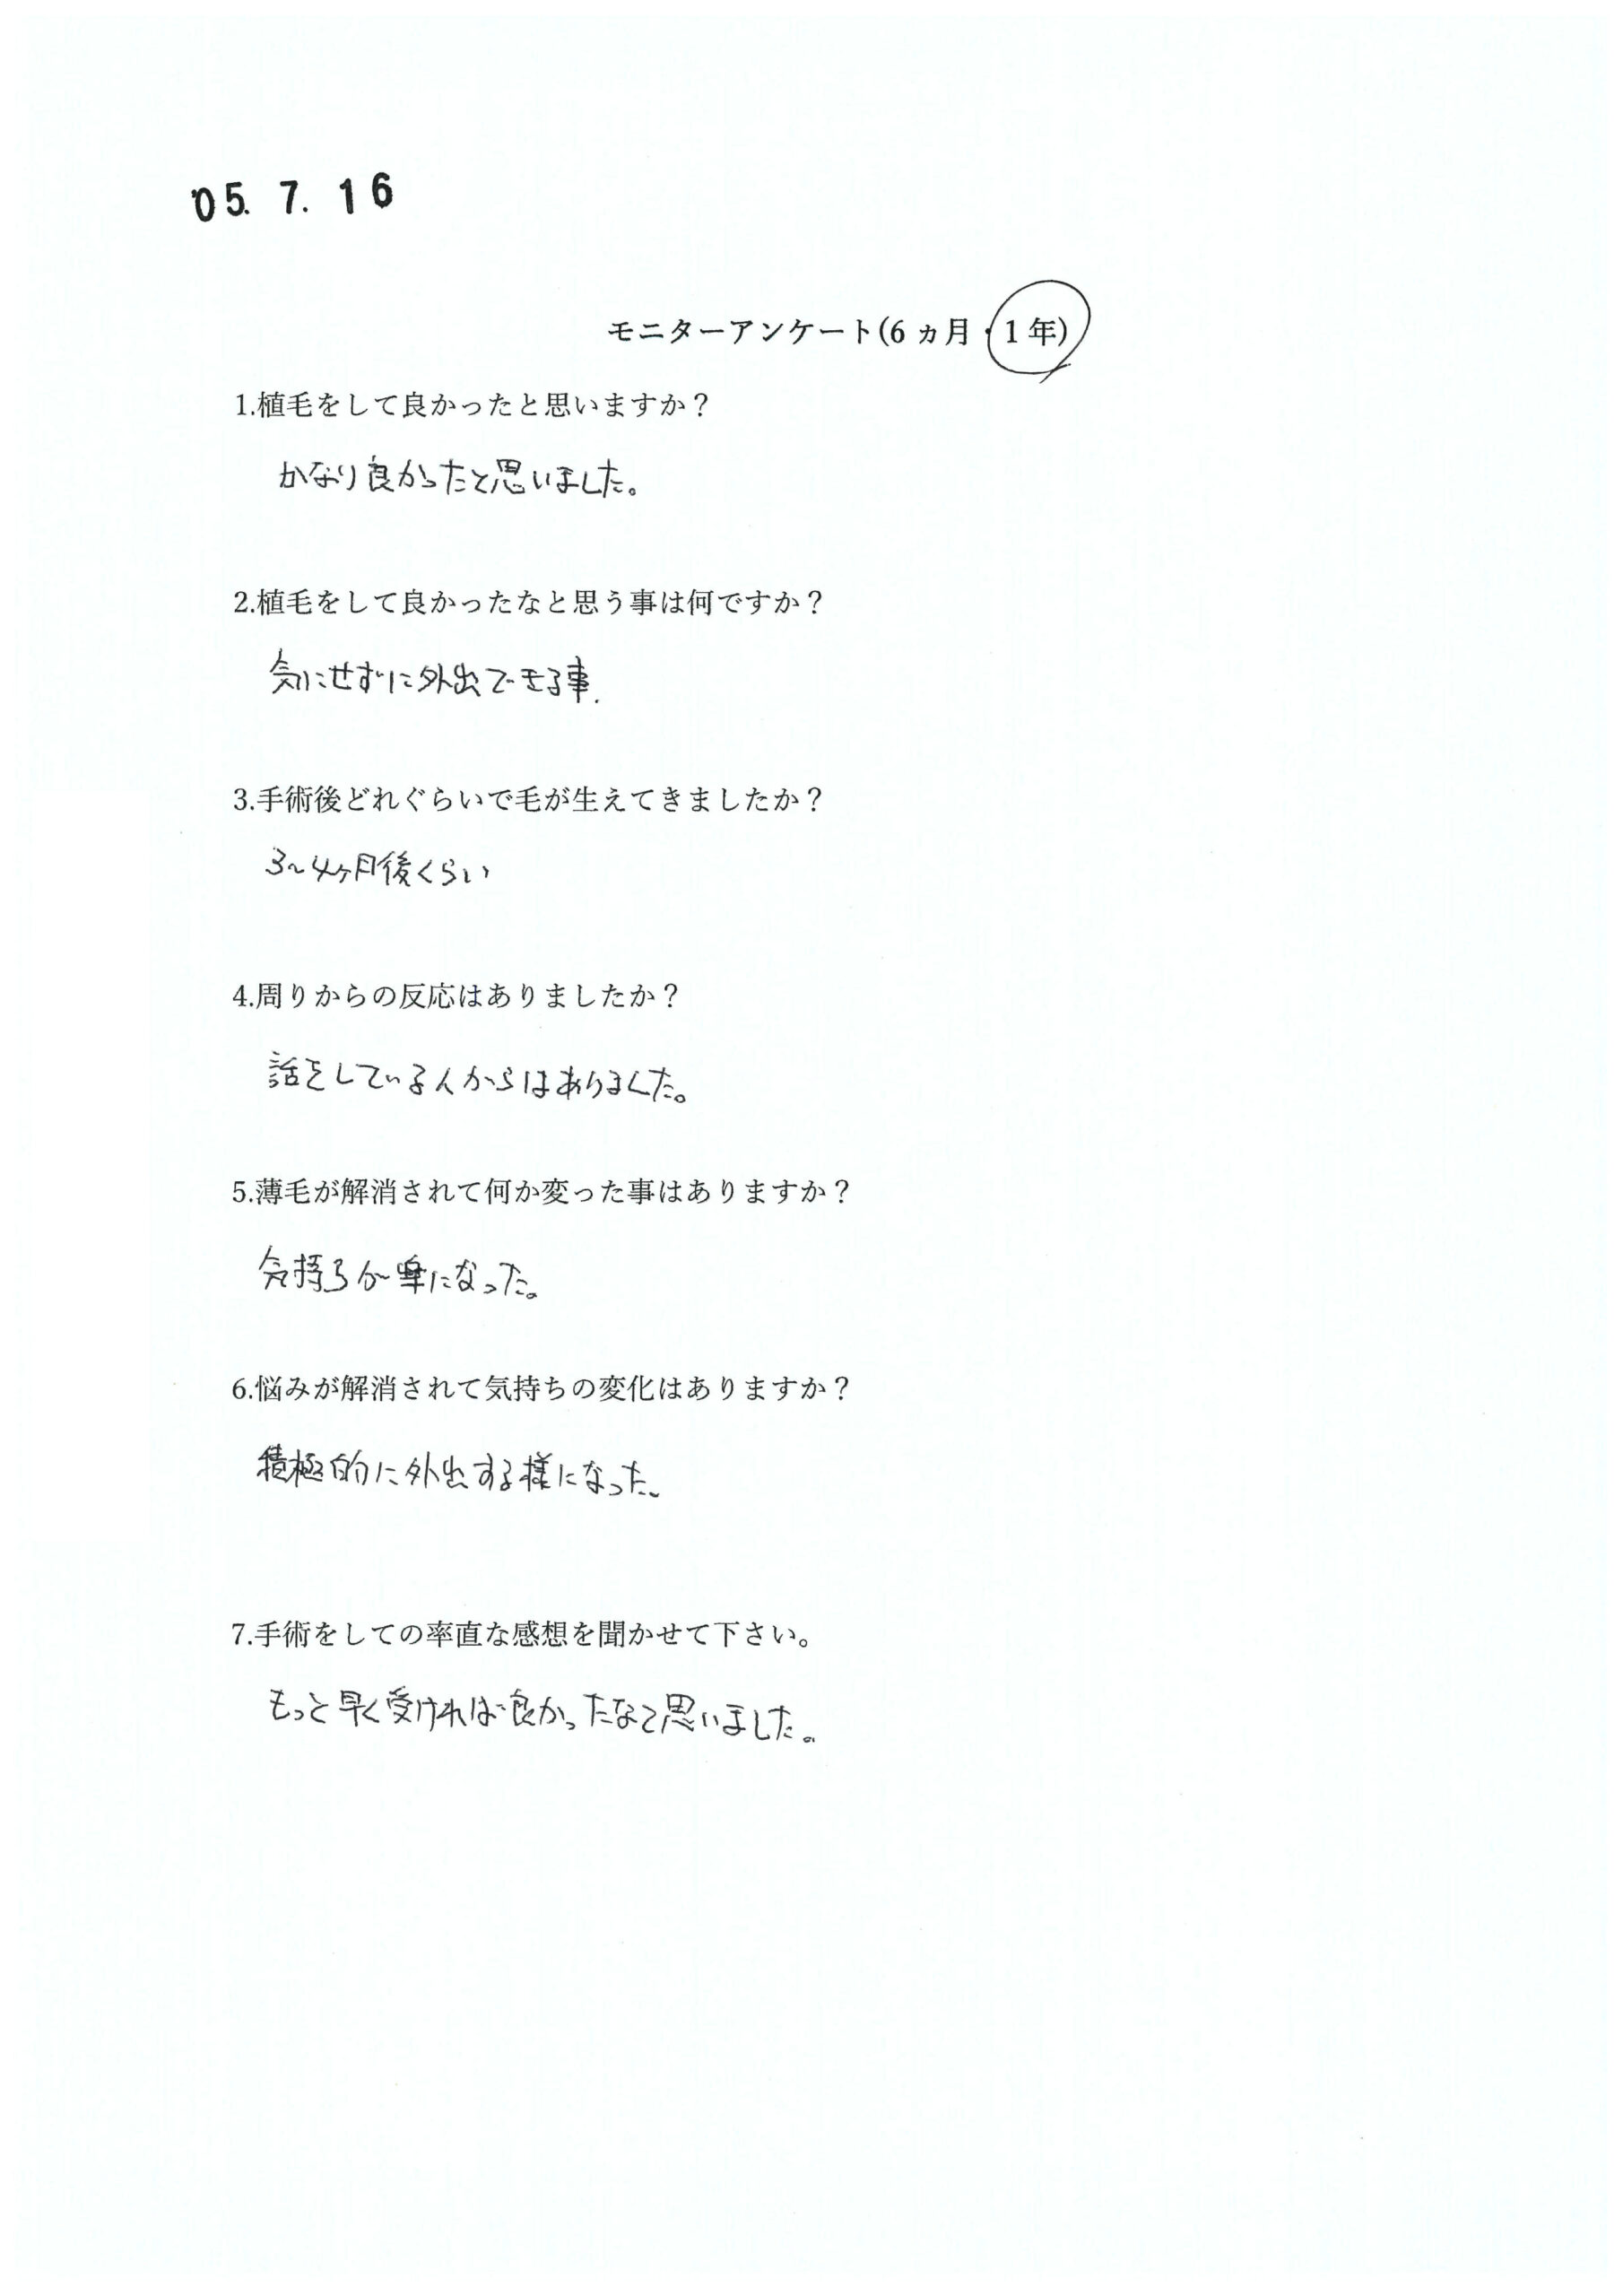 '05. 7. 16
モニターアンケート(6 ヵ月・1 年)
1.植毛をして良かったと思いますか？
かなり良かったと思いました。
2.植毛をして良かったなと思う事は何ですか？
気にせずに外出できる事.
3.手術後どれぐらいで毛が生えてきましたか？
3～4ヶ月後くらい
4.周りからの反応はありましたか？
話をしている人からはありました。
5.薄毛が解消されて何か変った事はありますか？
気持ちが楽になった。
6.悩みが解消されて気持ちの変化はありますか？
積極的に外出する様になった。
7.手術をしての率直な感想を聞かせて下さい。
もっと早く受ければ良かったなと思いました。